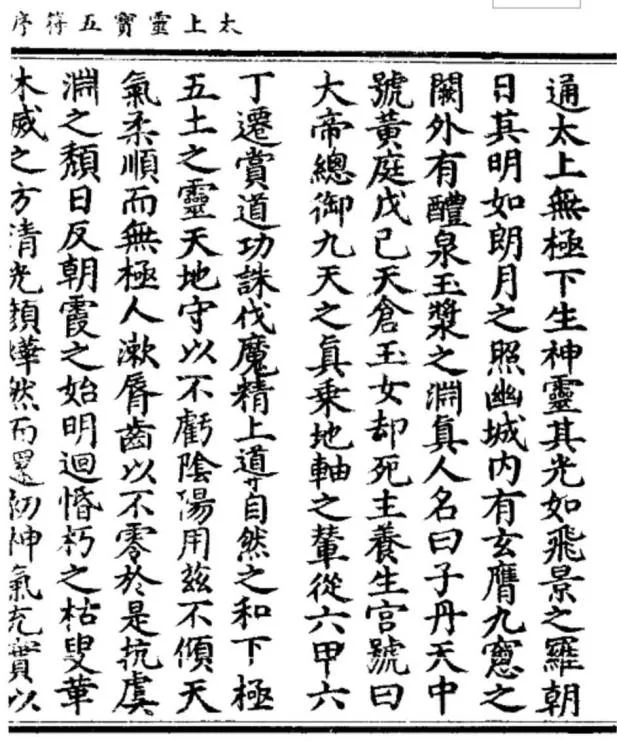 太上靈寶五符序
通太上無極下生神靈其光如飛景之羅朝
日其明如朗月之照幽城内有玄膺九窻之
闕外有醴泉玉漿之淵真人名曰子丹天中
號黃庭戊己天倉玉女却死主養生宮號曰
大帝總御九天之真乗地軸之輦從六甲六
丁遷賞道功誅伐魔精上導自然之和下極
五土之靈天地守以不虧陰陽用茲不傾天
氣柔順而無極人漱脣齒以不零於是抗虞
淵之頹日反朝霞之始明迴惛朽之枯叟華
木威之方清光顏燁然而還幼神氣充實以